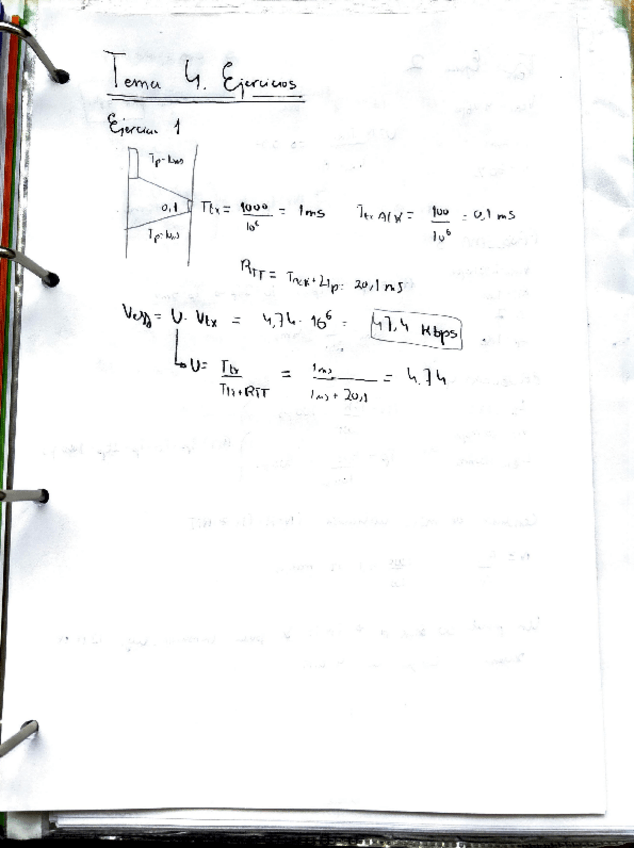 Tema 4. Ejercicios
Ejercicio 1
Tp = 10ms
0,1
Tp = 10ms
Ttx = 1000 / 10^6 = 1ms
Ttx ACK = 100 / 10^6 = 0,1 ms
RTT = TACK + 2Tp = 20,1 ms
Veff = U · Vtx = 4,74 · 10^6 = 47,4 Kbps
U = Ttx / Ttx + RTT = 1ms / 1ms + 20,1 = 4,74